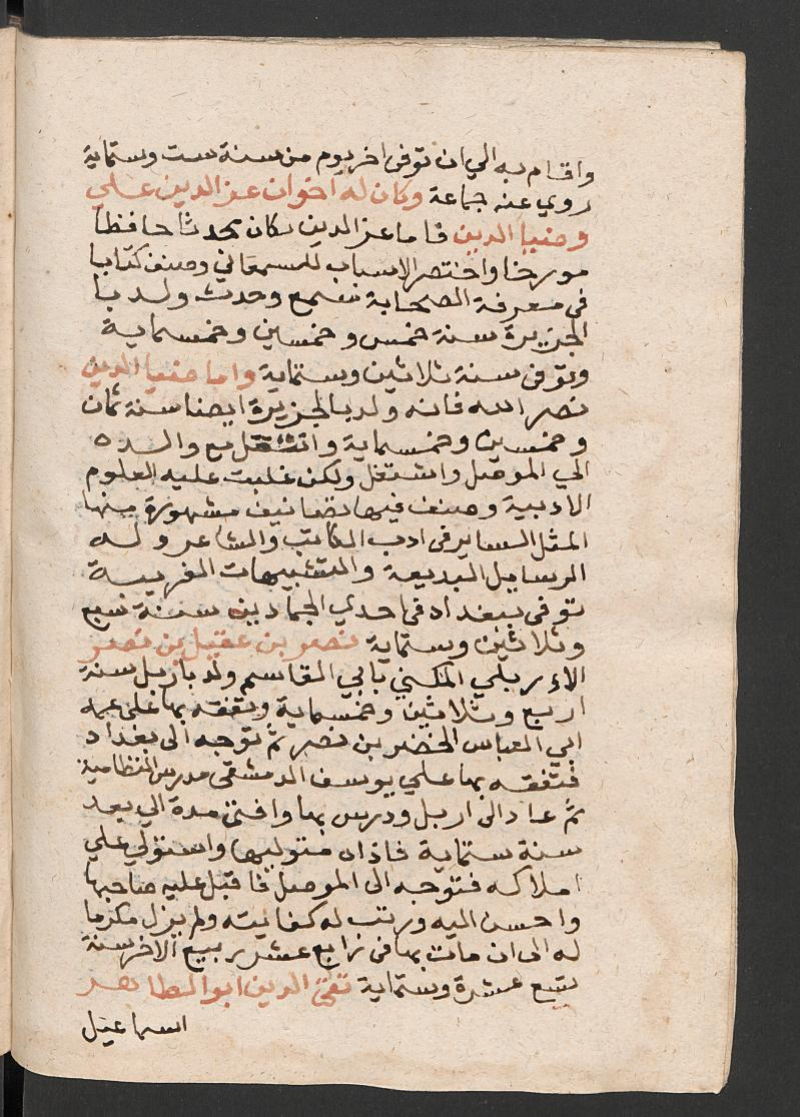 واقام به الي ان توفى اخر يوم من سنة ست وستماية
روي عنه جماعة وكان له اخوان عز الدين علي
وضيا الدين فاما عز الدين فكان محدثا حافظا
مورخا واختصر الانساب للسمعاني وصنف كتابا
فى معرفة الصحابة فسمع وحدث ولد با
لجزيرة سنة خمس وخمسين وخمسماية
وتوفى سنة ثلاثين وستماية واما ضيا الدين
نصر الله فانه ولد بالجزيرة ايضا سنة ثمان
وخمسين وخمسماية وانتقل مع والده
الي الموصل واشتغل ولكن غلبت عليه العلوم
الادبية وصنف فيها تصانيف مشهورة منها
المثل الساير فى ادب الكاتب والشاعر وله
الرسايل البديعة والتشبيهات الغريبة
توفى ببغداد فى احدي الجمادين سنة سبع
وثلاثين وستماية نصر بن عقيل بن نصر
الاربلي المكني بابي القاسم ولد باربل سنة
اربع وثلاثين وخمسماية وتفقه بها على عمه
ابي العباس الخضر بن نصر ثم توجه الى بغداد
فتفقه بها علي يوسف الدمشقى مدرس النظامية
ثم عاد الى اربل ودرس بها وافتى مدة الي بعد
سنة ستماية فاذاه متوليها واستولي علي
املاكه فتوجه الى الموصل فاقبل عليه صاحبها
واحسن اليه ورتب له كفايته ولم يزل مكرما
له الى ان مات بها فى رابع عشر ربيع الاخر سنة
تسع عشرة وستماية تقى الدين ابو الطاهر
اسماعيل